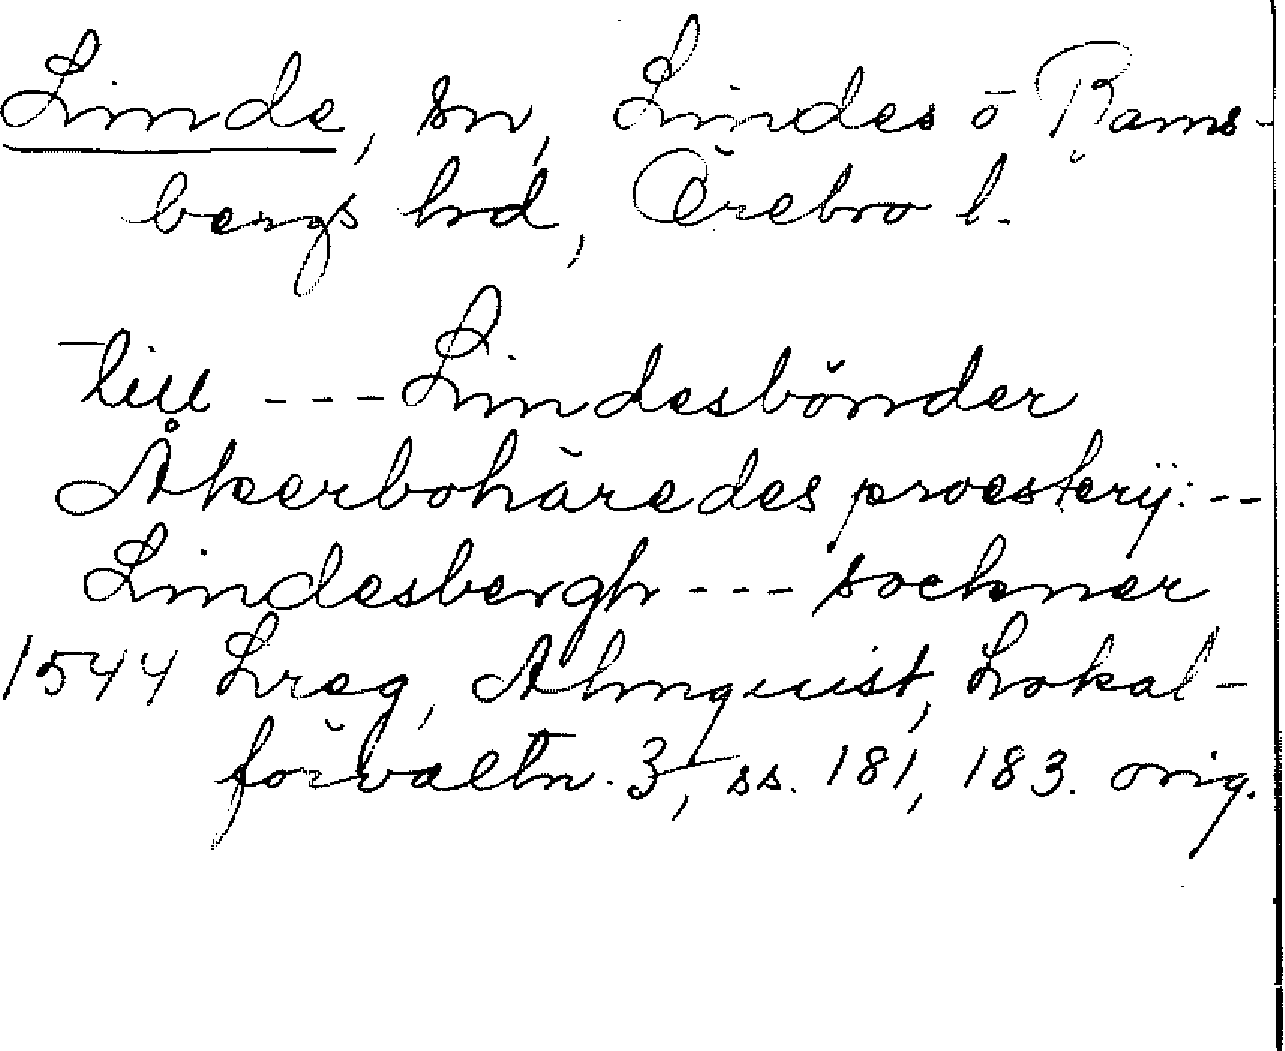 Linde, sn, Lindes o Rams-
bergs hrd, Örebro l.
till --- Lindesbönder
Åkerbohäredes proesterij: --
Lindesbergh --- sochner
1544 Lreg, Almquist, Lokal-
förvaltn. 3, ss. 181, 183. orig.